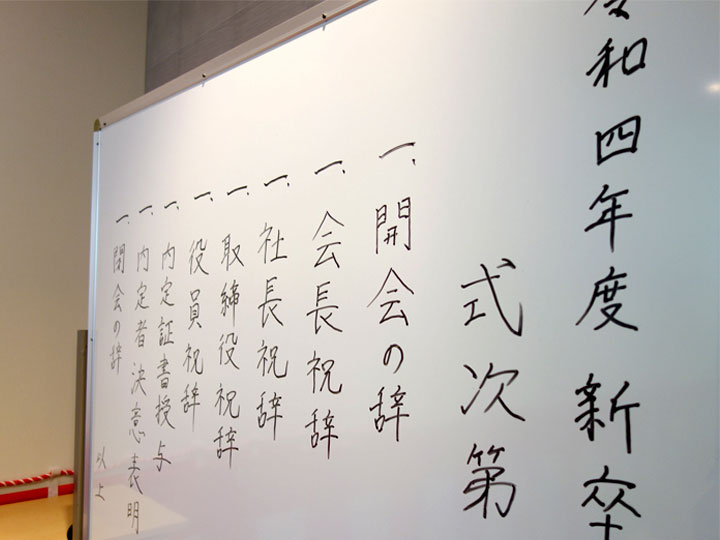 令和四年度 新卒
式次第
一、開会の辞
一、会長祝辞
一、社長祝辞
一、取締役祝辞
一、役員祝辞
一、内定証書授与
一、内定者決意表明
一、閉会の辞
以上